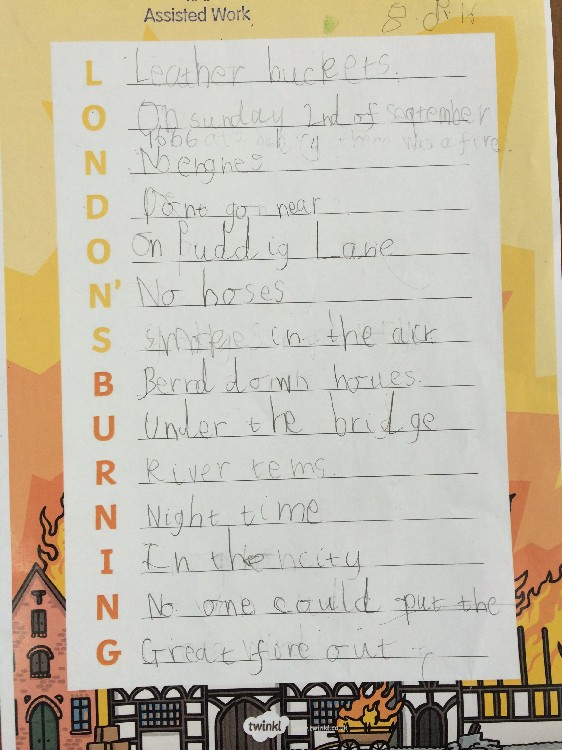 Assisted Work
L Leather buckets.
O On sunday 2nd of september
1666 there was a fire.
N No engnes
D Dont go near
O On Puddig Lane
N' No hoses
S smoke in the air
B Bernd down houes.
U Under the bridge
R River tems.
N Night time
I In the city
N No one could put the
G Great fire out
twinkl